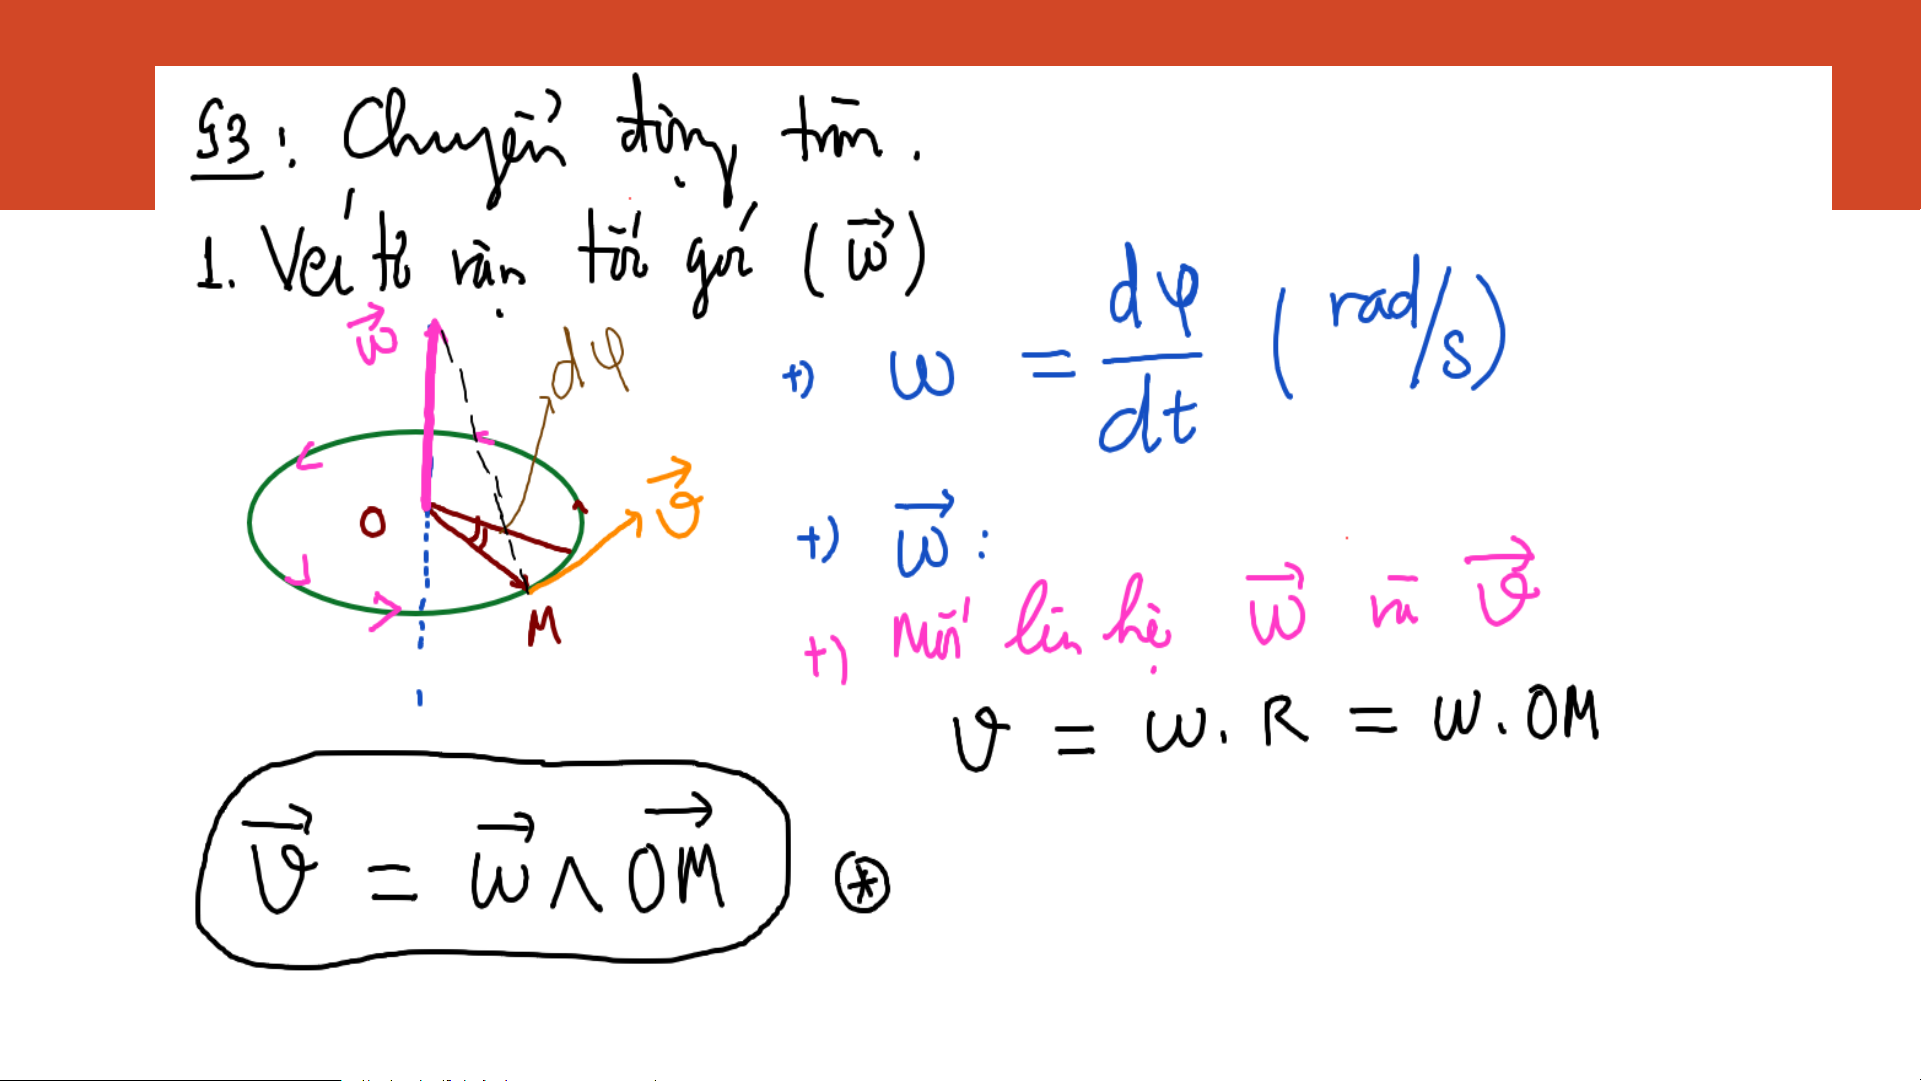 §3: Chuyển động tròn.
1. Véc tơ vận tốc góc (ω⃗)
ω⃗
dφ
+) ω = dφ/dt (rad/s)
O
v⃗
M
+) ω⃗:
+) Mối liên hệ ω⃗ và v⃗
v = ω.R = ω.OM
v⃗ = ω⃗ ∧ OM⃗ ⊛